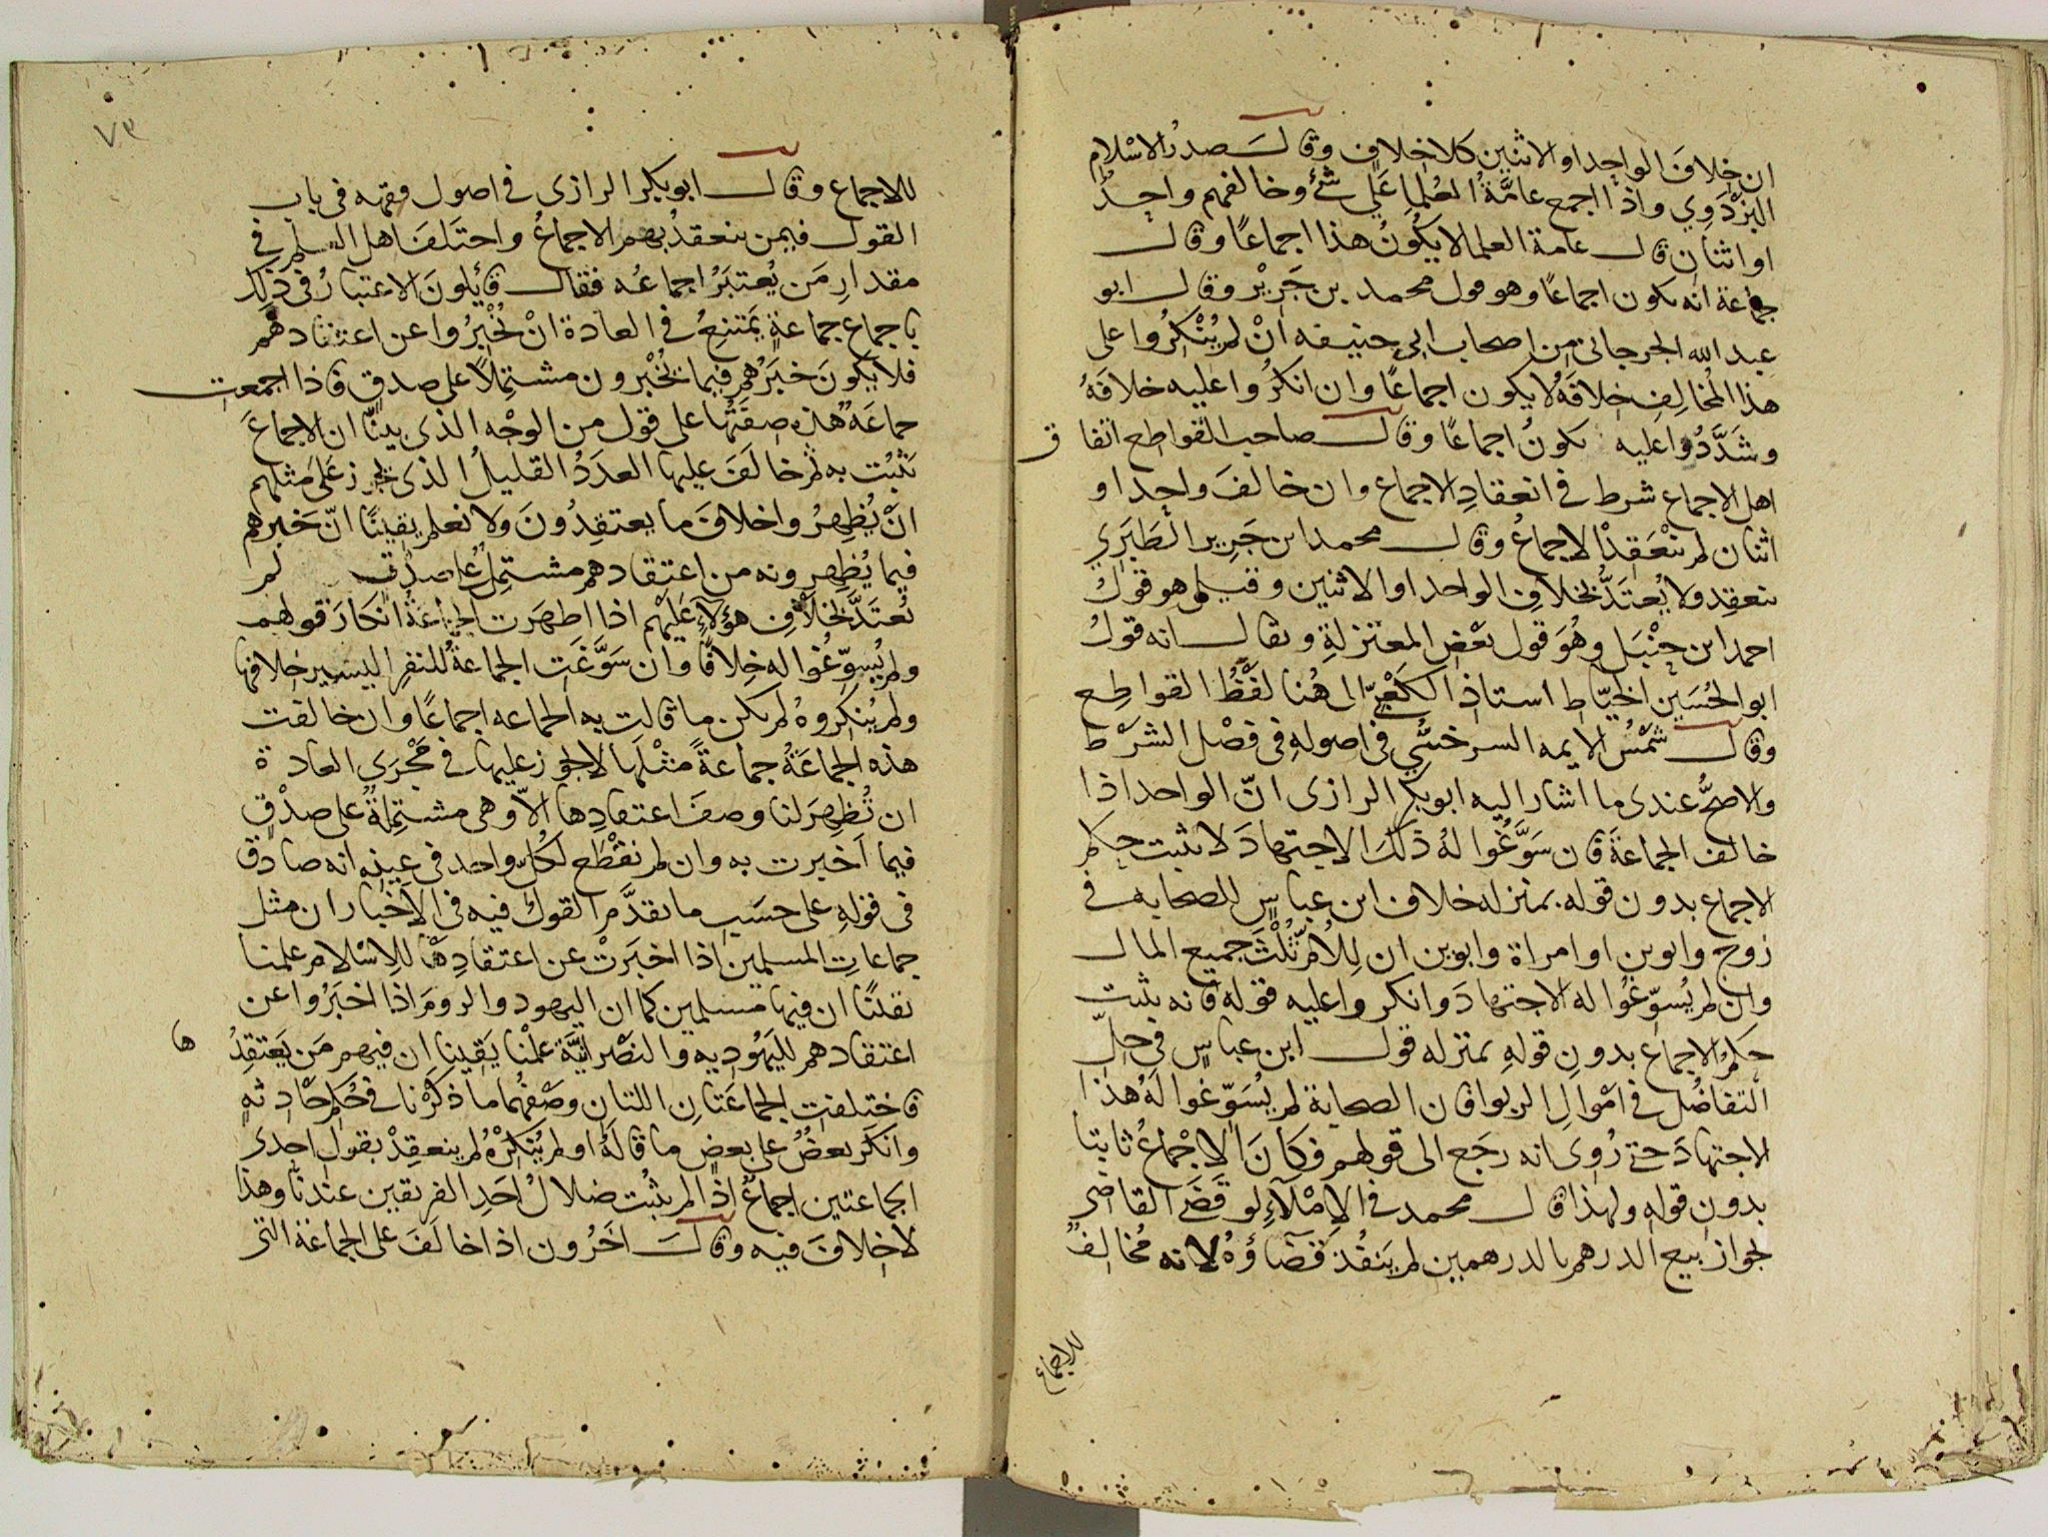 ان خلافَ الواحِدِ او الاثنين كلا خلافٍ وقال صدرُ الاسْلام
البَزْدَوِي واذا اجمع عامَّةُ العُلماِ عَلي شئٍ وخالفهم واحِدٌ
او اثنان قال عامة العلما لا يكُونُ هذا اجماعًا وقال
جماعة انه يكون اجماعًا وهو قول محمد بن جَرِيْر وقال ابو
عبد الله الجرجاني من اصحاب ابي حنيفه انْ لم يُنْكرُوا على
هذا المُخالِفِ خلافَهُ لا يكون اجماعًا وان انكرُوا عليه خلافَهُ
وشَدَّدُوا عليه يكونُ اجماعًا وقال صاحب القواطع اتفاق
اهل الاجماع شرط في انعقادِ الاجماع وان خالفَ واحِد او
اثنان لم ينْعَقِدْ الاجماعُ وقال محمد ابن جَرِير الطَبَري
ينعقِد ولا يُعتَدُّ بخلافِ الواحد او الاثنين وقيل هو قولُ
احمد ابن حنْبَل وهُوَ قول بَعْضِ المعتزلةِ ويقال انه قولُ
ابو الحُسَين الخيّاط استاذ الكَعْبِيّ الى هُنا لفْظُ القواطِع
وقال شمْسُ الايمه السرخسِّي في اصولهِ في فصْل الشرْط
والاصحُّ عندى ما اشار اليه ابو بكر الرازى انّ الواحد اذا
خالف الجماعةَ فان سَوَّغُوا لهُ ذلك الاجتهادَ لا يثبت حكم
الاجماع بدون قوله بمنزله خلاف ابن عباسٍ للصحابه في
زوج وابوين او امراة وابوين ان لِلاُمّ ثُلُثَ جميع المال
وان لم يُسوّغُوا له الاجتهادَ وانكروا عليه قوله فانه يثبت
حكمُ الاجماع بدونِ قولهِ بمنزله قول ابن عباسٍ في حِلِّ
التفاضُل في امْوالِ الربوا فان الصحابة لم يُسَوّغوا لهُ هذا
الاجتهادَ حتى رُوى انه رجَع الى قولهم فكانَ الاجْماعُ ثابتا
بدون قولهِ ولهذا قال محمد في الاِمْلآءِ لو قَضَى القاضى
بجواز بيع الدرهم بالدرهمين لم يَنفُذ قَضآؤُهُ لانه مُخالِفٌ
للاجماع
٧٣
للاجماع وقال ابو بكر الرازى في اصول فقهه في باب
القول فيمن ينعقدُ بهم الاجماعُ واختَلفَ اهل العلم في
مقدارِ مَن يُعتبَرُ اجماعُه فقال قآئلونَ الاعتبارُ في ذلِك
باجماع جماعةٍ يَمتنِعُ في العادة انْ يُخْبِرُوا عن اعتقادهم
فلا يكونَ خبَرُهم فيما يُخْبِرون مشتمِلاً على صدقٍ فاذا اجمعت
جماعَةٌ هذه صِفَتُها على قول من الوجْه الذى بينّا ان الاجماعَ
يَثبُت به ثم خالَفَ عليها العدَدُ القليلُ الذى يجوز عَلَى مثلهم
انْ يُظهِرُوا خلافَ ما يعتقِدُونَ ولا نعلم يقينًا انّ خبرهم
فيما يُظهِرونه من اعتقادهم مشتمِلٌ على صدْقٍ لم
يُعتَدَّ بخلافِ هؤلآءِ عَلَيْهم اذا اظهَرت الجماعَةُ انكارَ قولهم
ولم يُسوّغُوا له خِلافًا وان سَوَّغَتِ الجماعةُ للنفرِ اليسير خلافها
ولم يُنكِروهُ لم يكن ما قالت به الجماعه اجماعًا وان خالفت
هذه الجماعَةُ جماعةً مثْلَها لا يجوز عليها في مَجْرَى العادة
ان تُظهِرَ لنا وصفَ اعتقادِها الاّ وهى مشتمِلةٌ على صدْقٍ
فيما اَخبرت به وان لم نقْطَع لكُلّ واحد في عينه انه صادق
في قولهِ على حسَبِ ما تقدَّم القولُ فيه في الاَخبار ان مثل
جماعاتِ المسلمين اذا اخبَرتْ عن اعتقادِها للاِسْلام علمنا
يقينًا ان فيها مسلمين كما ان اليهود والرومَ اذا اخبَرُوا عن
اعتقادهم لليهُوديه والنصْرانيَّة علمْنا يَقينا ان فيهم مَن يَعتقِدُها
فاختلفت الجماعَتانِ اللتان وصْفُهُما ما ذكرْنا في حُكم حادثهٍ
وانكَر بعضٌ على بعضٍ ما قالَهُ او لم يُنكِرْهُ لم ينعقِدْ بقول احدى
الجماعتين اجماعٌ اذا لم يثبُت ضلالُ اَحَدِ الفريقين عندنا وهذا
لا خلافَ فيه وقال اَخَرُون اذا خالَفَ على الجماعَة التي